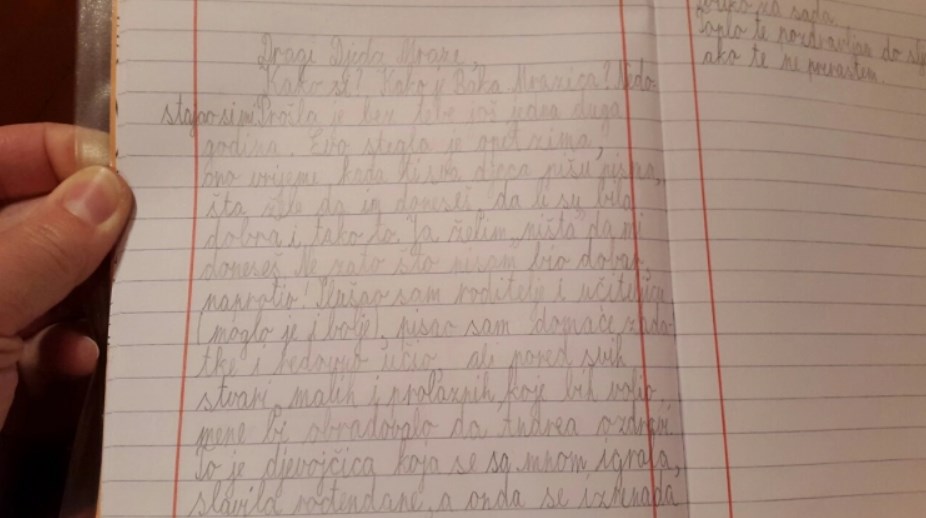 Dragi Djeda Mraze,
Kako si? Kako je Baka Mrazica? Nedo-
stajao si mi! Prošla je bez tebe još jedna duga
godina. Evo stigla je opet zima,
ono vrijeme kada ti sva djeca pišu pisma,
šta žele da im doneseš, da li su bila
dobra i tako to. Ja želim ništa da mi
doneseš. Ne zato što nisam bio dobar,
naprotiv! Slušao sam roditelje i učiteljicu
(moglo je i bolje), pisao sam domaće zada-
tke i redovno učio, ali pored svih
stvari, malih i prolaznih, koje bih volio,
mene bi obradovalo da Andrea ozdravi.
To je djevojčica koja se sa mnom igrala,
slavila rođendane, a onda se iznenada
za sada.
te pozdravljam do
ako te ne prerastem.